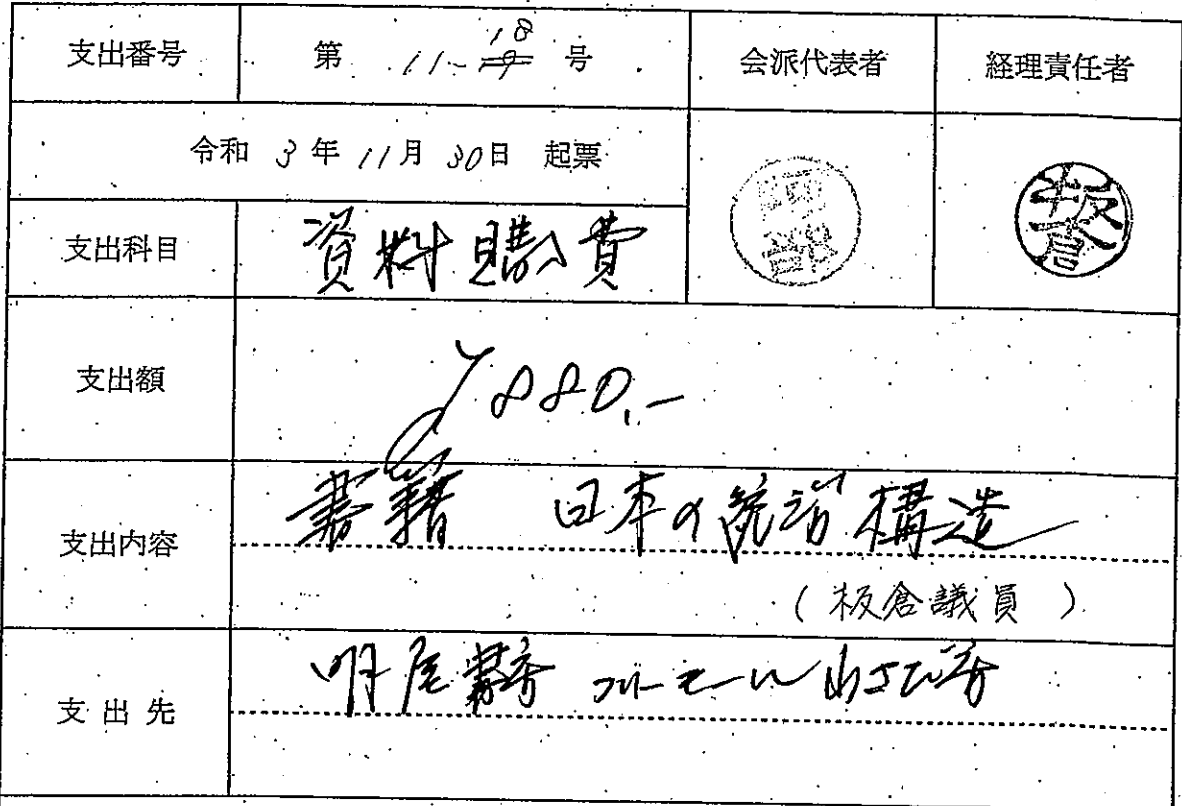 支出番号 第 11-18 号 会派代表者 経理責任者
令和 3 年 11 月 30 日 起票
板倉
支出科目 資料購入費
支出額 ¥880.-
支出内容 書籍 日本の統治構造
(板倉議員)
支出先 明屋書店 フジモール